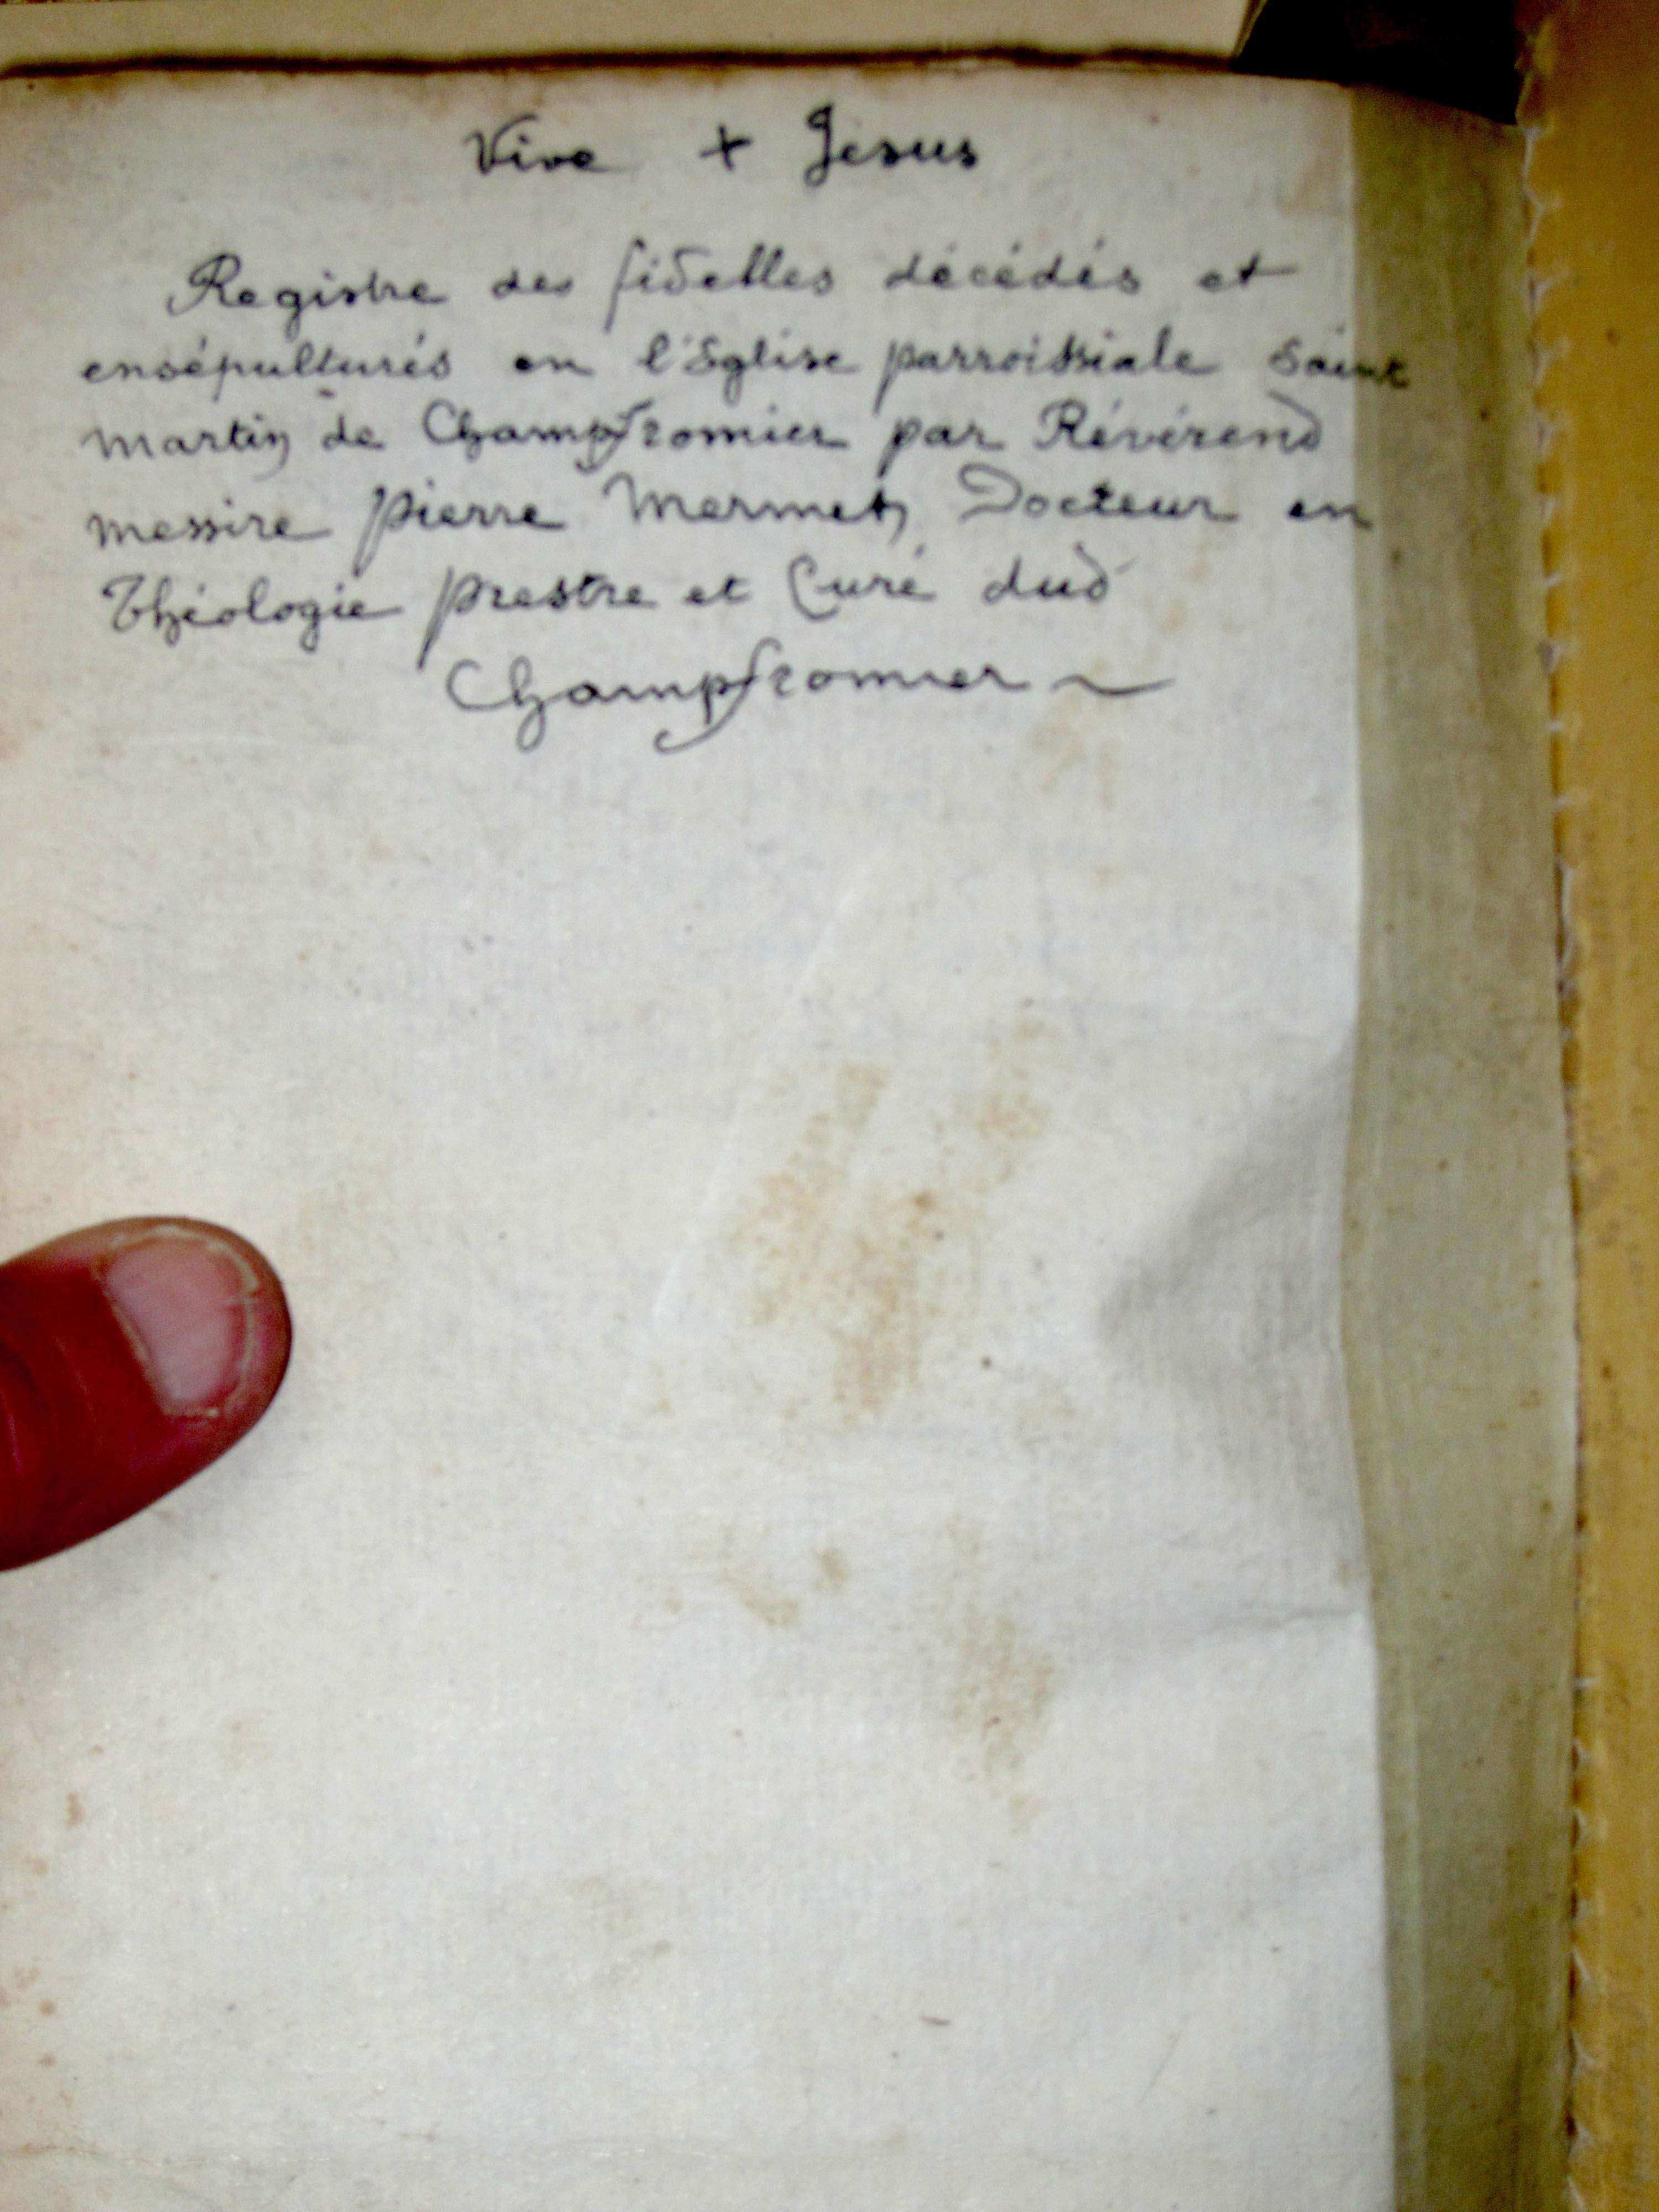 Vive + Jesus
Registre des fidelles décédés et
ensépulturés en l'Eglise parroissiale Saint
martin de Champfromier par Révérend
messire pierre Mermet, Docteur en
Théologie prestre et Curé dud
Champfromier ~